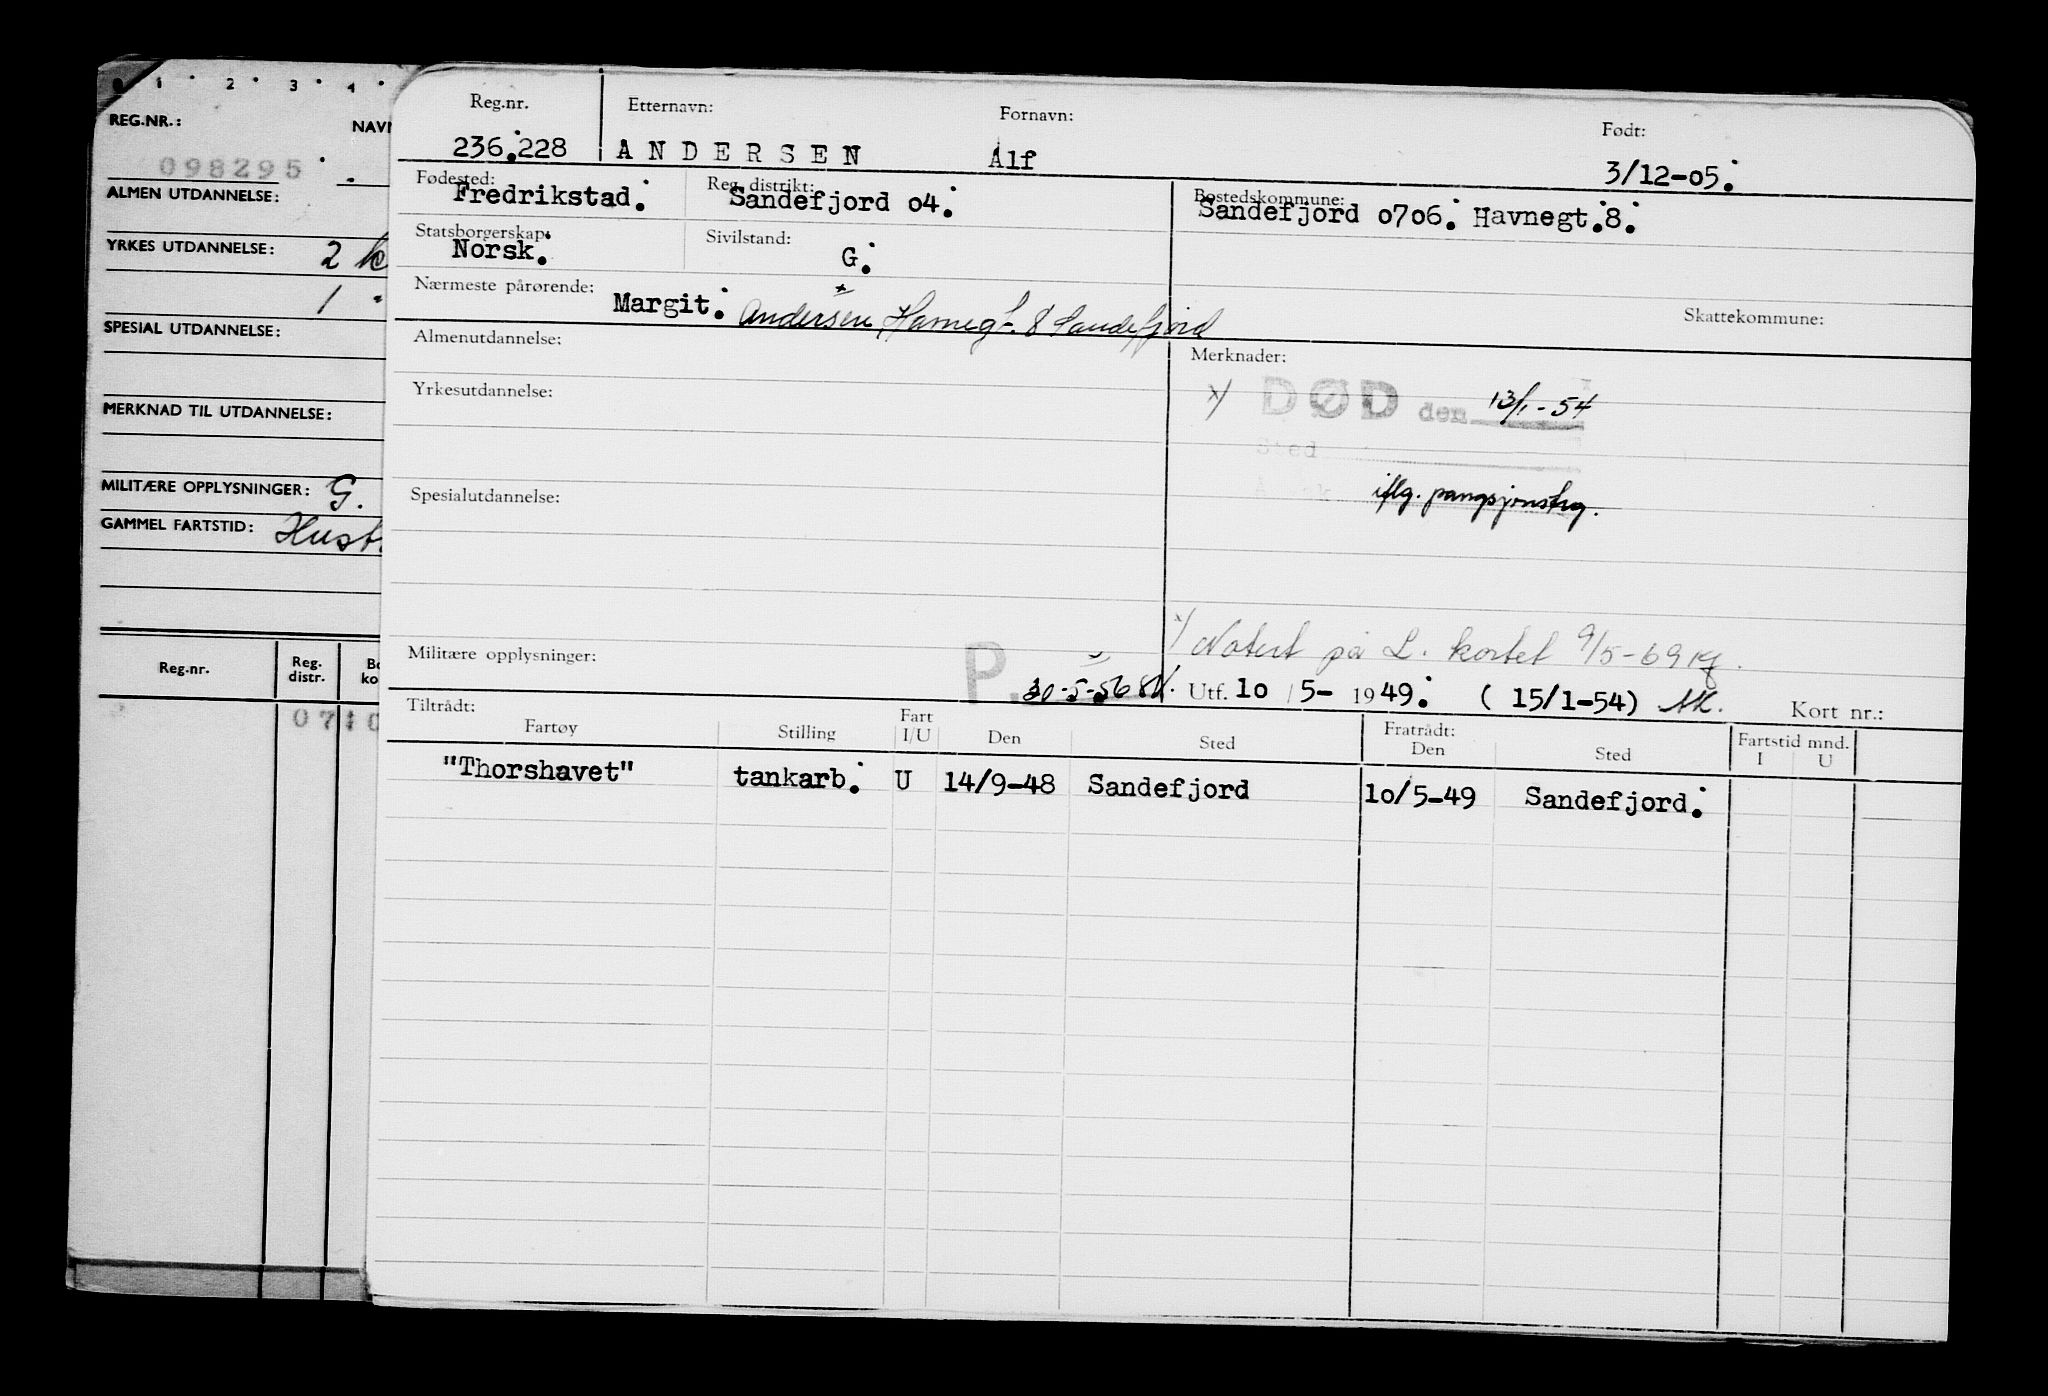 1 2 3 4
REG.NR.: NAVN
098295
ALMEN UTDANNELSE:
YRKES UTDANNELSE: 2 k
1 "
SPESIAL UTDANNELSE:
MERKNAD TIL UTDANNELSE:
MILITÆRE OPPLYSNINGER: G.
GAMMEL FARTSTID: Hust.
Reg.nr. Reg. distr. Bo ko
07 10
Reg.nr. Etternavn: Fornavn: Født:
236.228 ANDERSEN Alf 3/12-05.
Fødested: Reg. distrikt: Bostedskommune:
Fredrikstad. Sandefjord 04. Sandefjord 0706. Havnegt.8.
Statsborgerskap: Sivilstand:
Norsk. G.
Nærmeste pårørende: Skattekommune:
Margit. Andersen, Havnegt. 8 Sandefjord
Almenutdannelse: Merknader:
Yrkesutdannelse: x/ DØD den 13/1-54
Sted
Spesialutdannelse: iflg. pangsjonstrg.
x/ Notert på L. kortet 9/5-69 Kf.
Militære opplysninger:
P. 30-5-56 Utf. 10 / 5- 1949. ( 15/1-54) AK. Kort nr.:
Tiltrådt: Fratrådt: Fartstid mnd.
Fartøy Stilling Fart I/U Den Sted Den Sted I U
"Thorshavet" tankarb. U 14/9-48 Sandefjord 10/5-49 Sandefjord.